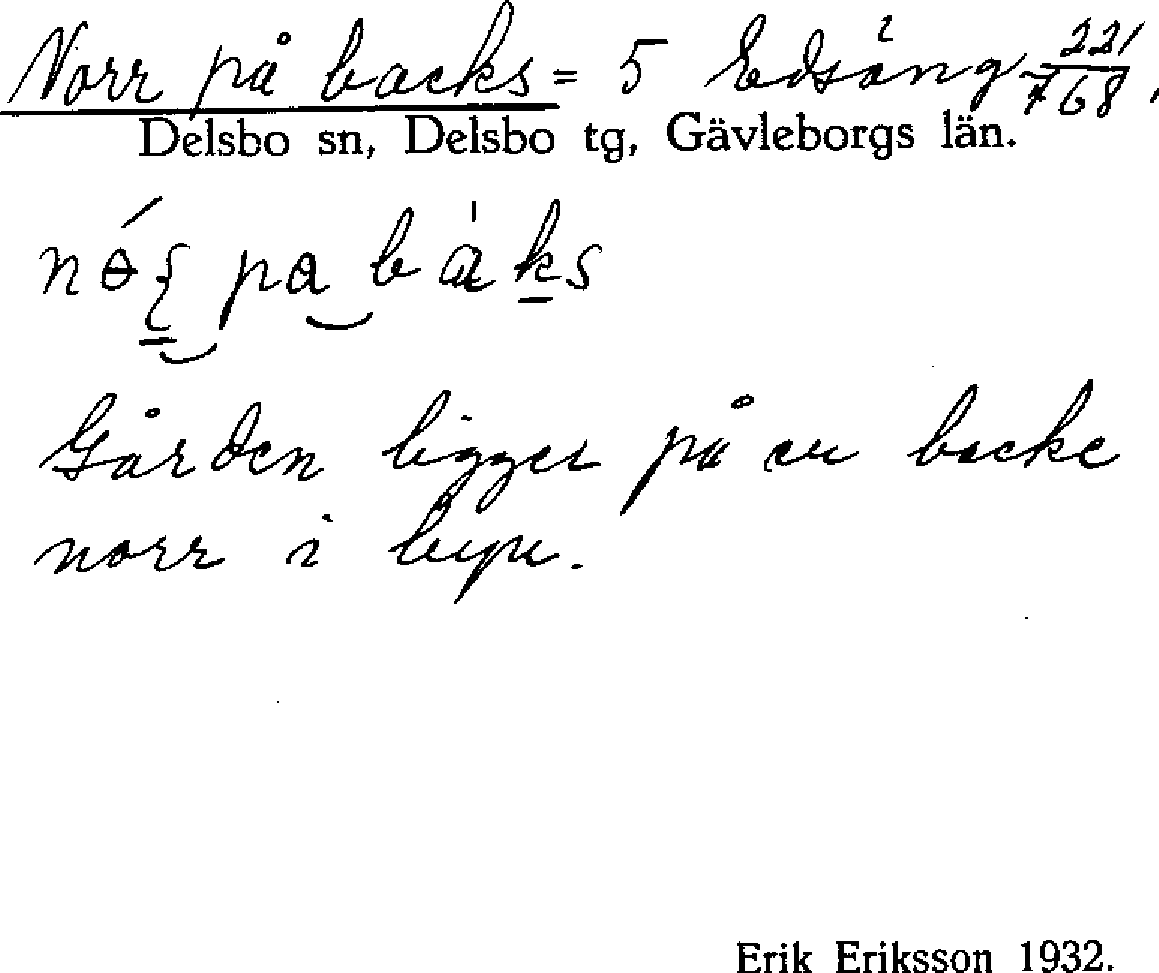 Norr på backs = 5 Edsäng 221/768.
Delsbo sn, Delsbo tg, Gävleborgs län.
pa báks
Gården ligger på en backe
norr i byn.
Erik Eriksson 1932.